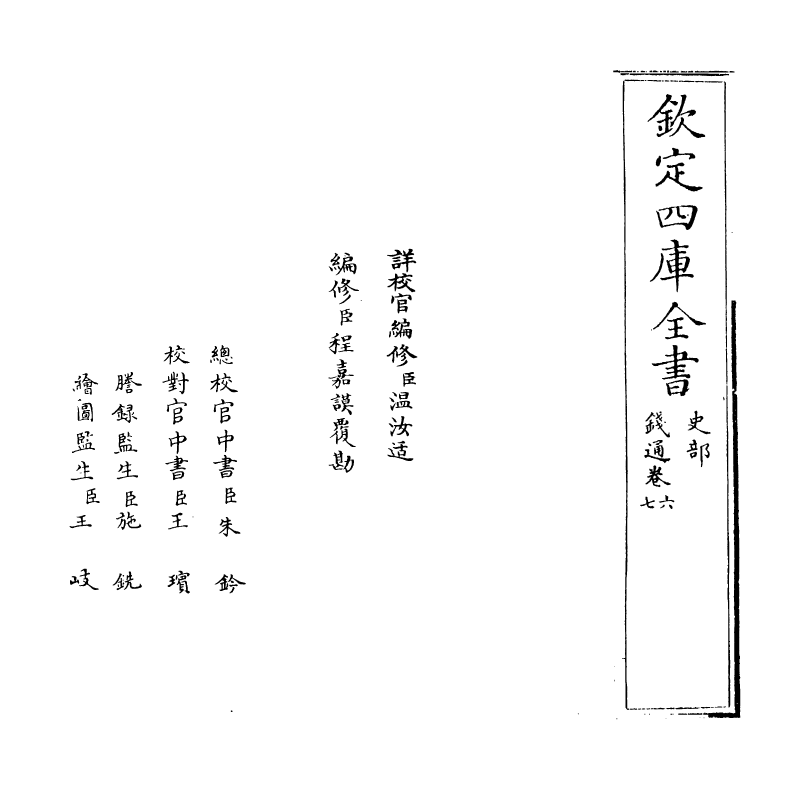 欽定四庫全書
史部
錢通卷六七
詳校官編修臣温汝适
編修臣程嘉謨覆勘
總校官中書臣朱鈐
校對官中書臣王璸
謄録監生臣施銑
繪圖監生臣王岐